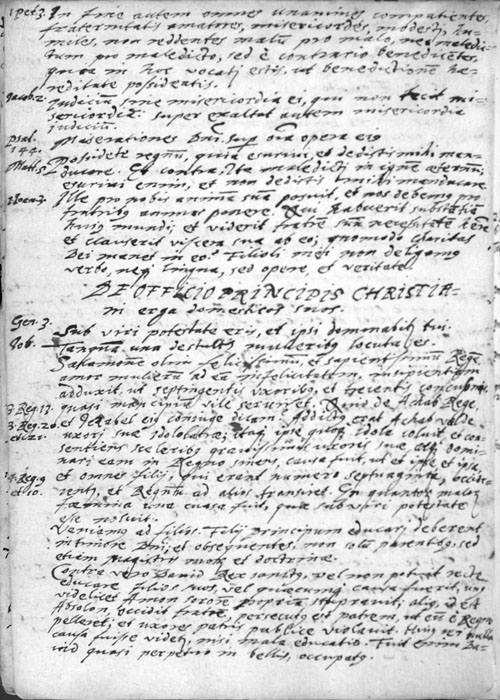 1 Pet. 3. In fine autem omnes unanimes compatientes,
fraternitatis amatores, misericordes, modesti, hu-
miles, non reddentes malũ pro malo, nec maledic-
tum pro maledicto, sed è contrario benedicẽtes,
quia in hoc vocati estis, ut benedictionẽ hæ-
reditate possideatis.
Jacob. 2. Judiciũ sine misericordia ei, qui non fecit mi-
sericordiã: superexaltat autem misericordia
judiciũ.
Psal. 144. Miserationes Dñi sup oĩa opera eiꝰ
Matt. 5 Possidete regnũ, quia esurivi, et dedisti mihi man-
ducare. Et contra, Ite maledicti in ignẽ æternũ;
esurivi enim, et non dedistis mihi manducare
1 Ioan. 3. Ille pro nobis animã suã posuit, et nos debemꝰ pro
fratribꝰ animas ponere. Qui habuerit substãtiã
huiꝰ mundi, et viderit fratrẽ suũ necessitatẽ h̃ere
et clauserit viscera sua ab eo, quomodo charitas
Dei manet in eo? Filioli mei non diligamꝰ
verbo, neqꝫ lingua, sed opere, et veritate.
DE OFFICIO PRINCIPIS CHRISTIA-
ni erga domesticos suos.
Gen. 3. Sub viri potestate eris, et ipse dominabit tui.
Iob. Tanquã una de stultis mulieribꝰ locuta es.
Salamonẽ olim felicissimũ, et sapientissimũ Regẽ
amor mulierũ ad eã infelicitatem, insipientiam
adduxit, ut septingentis uxoribꝰ, et trecentis concubinis
3. Reg. 13. quasi mancipiũ vile serviret. Quid de Achab Rege,
3. Reg. 20. et Jezabel eiꝰ coniuge dicam? Addictꝰ erat Achab valde
et 21. uxori suæ idololatræ; itaqꝫ ipse quoqꝫ idola coluit, et con-
sentiens sceleribꝰ gravissimis uxoris suæ, atqꝫ domi-
nari eam in Regno sinens, causa fuit, ut et ipse et ipsa,
4. Reg. 9 et omnes filij, qui erant numero septuaginta, occide-
et 10. rentꝰ, et Regnũ ad alios transiret. En quantorꝫ malorꝫ
fœmina una causa fuit, quæ sub viri potestate
esse noluit.
Veniamꝰ ad filios. Filij Principum educari deberent
in timore Dñi, et obsequentes, non solũ parentibꝰ, sed
etiam Magistris morũ et doctrinæ.
Contra vero David Rex sanctꝰ, vel non potuit recte
educare filios suos, vel quæcumqꝫ causa fuerit, unꝰ
videlicet Amon sororẽ propriã stupravit; aliꝰ, id est
Absolon, occidit fratrẽ, persecutꝰ est patrem, ut eũ è Regno
pelleret, et uxores patris publice violavit. Huiꝰ rei nulla
causa fuisse videtꝰ, nisi mala educatio. Fuit enim Da-
vid quasi perpetuo in bellis, occupatꝰ.